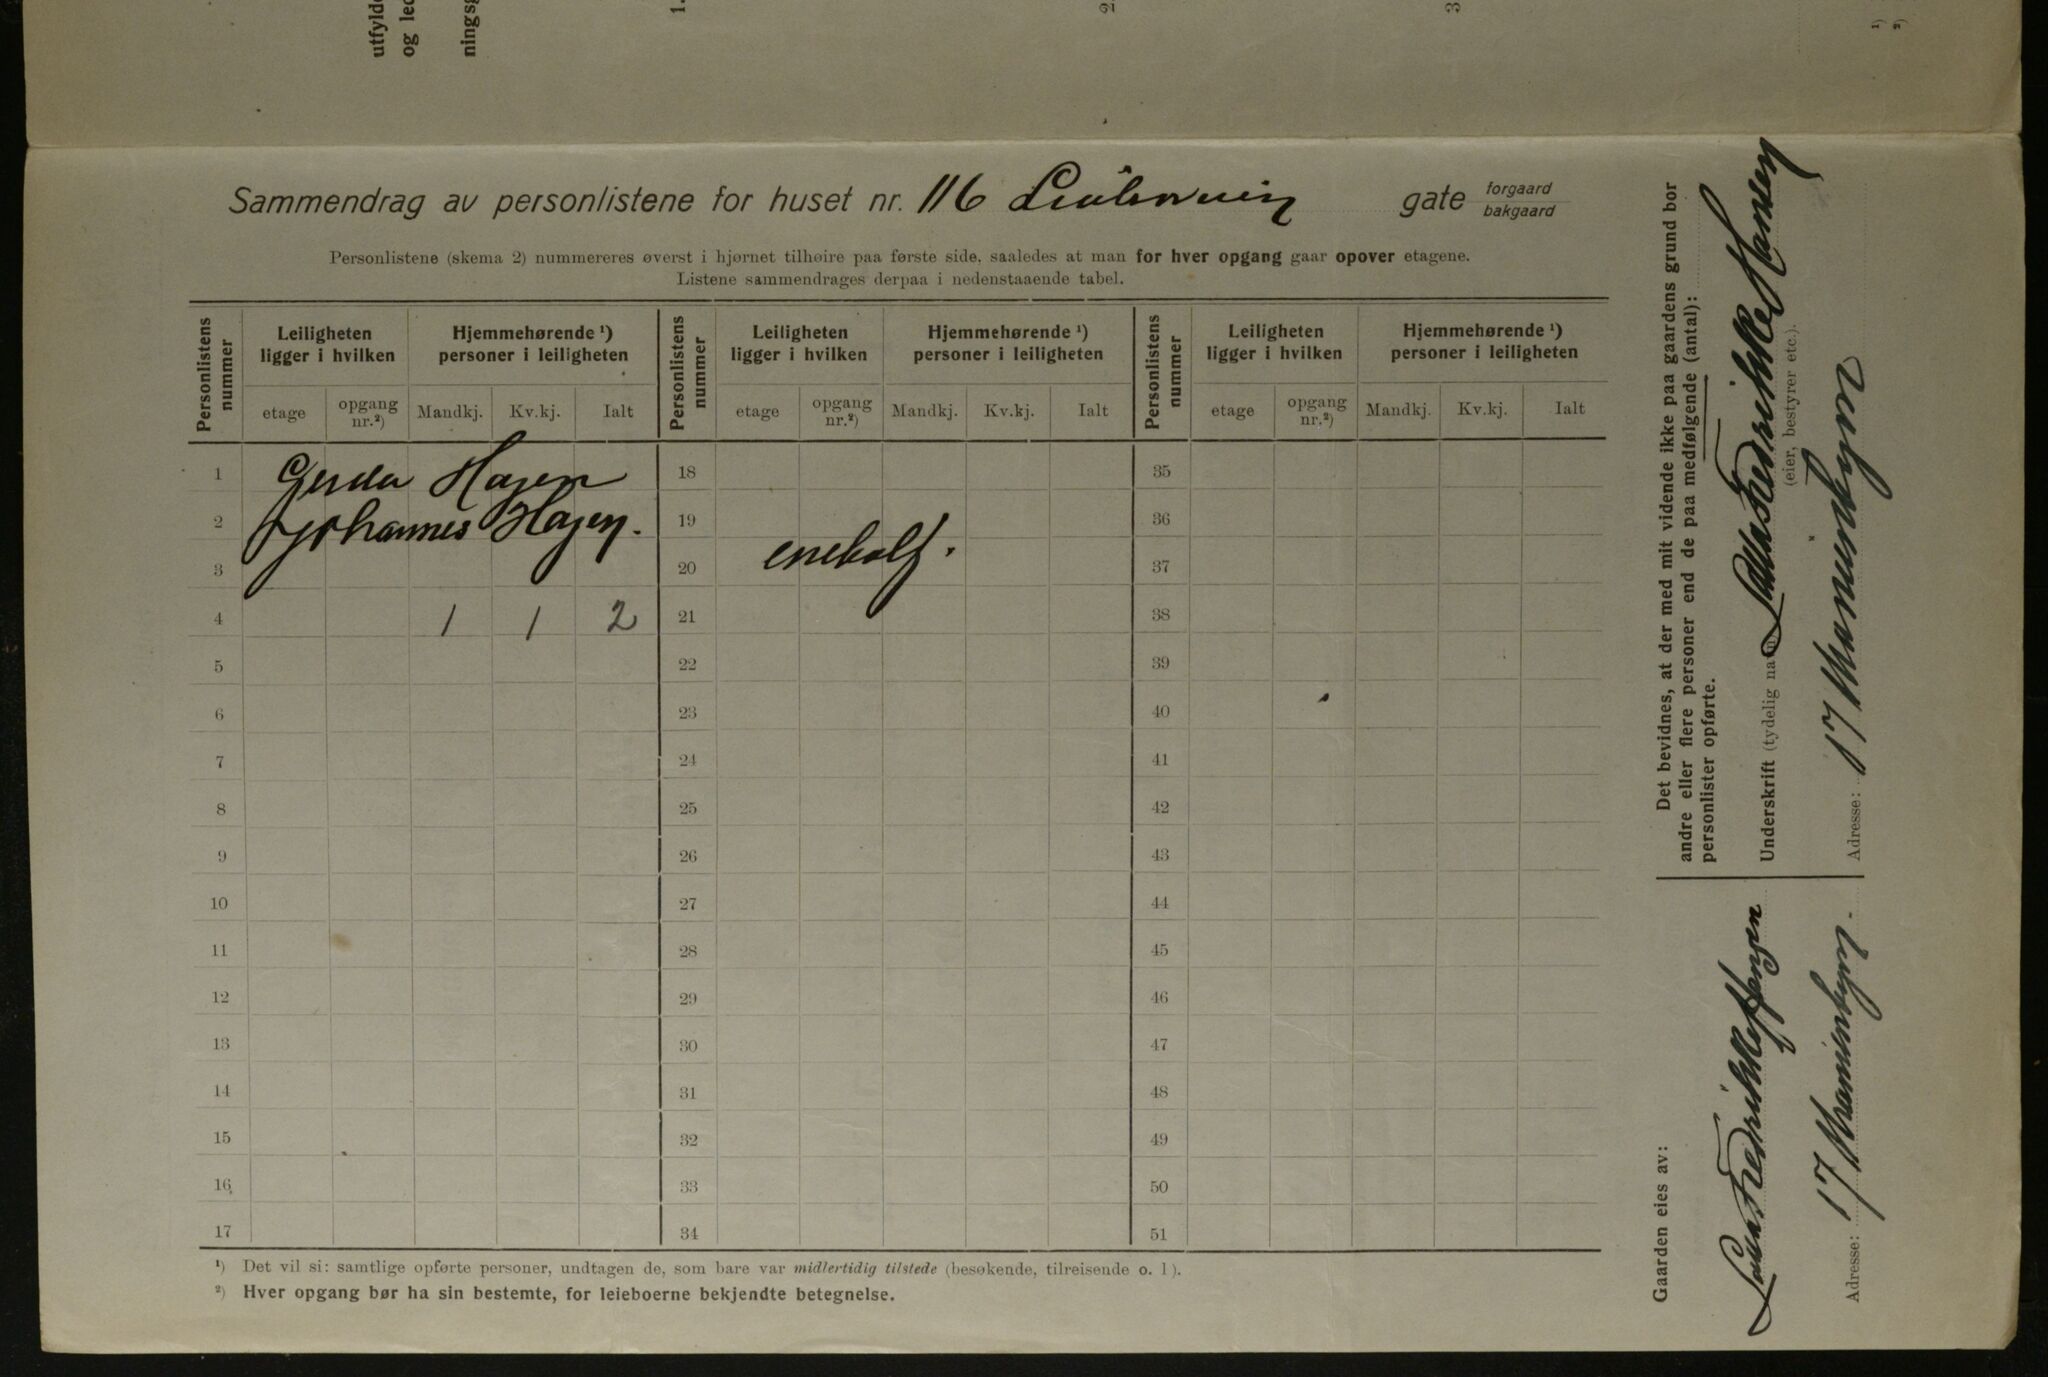 utfylde
og led
ningsg
1.
2.
3
¹)
²)
Sammendrag av personlistene for huset nr. 116 gate forgaard bakgaard
Personlistene (skema 2) nummereres øverst i hjørnet tilhøire paa første side, saaledes at man for hver opgang gaar opover etagene.
Listene sammendrages derpaa i nedenstaaende tabel.
Personlistens nummer Leiligheten ligger i hvilken Hjemmehørende ¹) personer i leiligheten Personlistens nummer Leiligheten ligger i hvilken Hjemmehørende ¹) personer i leiligheten Personlistens nummer Leiligheten ligger i hvilken Hjemmehørende ¹) personer i leiligheten
etage opgang nr.²) Mandkj. Kv.kj. Ialt etage opgang nr.²) Mandkj. Kv.kj. Ialt etage opgang nr.²) Mandkj. Kv.kj. Ialt
1 Gerda Hagen 18 35
2 Johannes Hagen. 19 36
3 20 37
4 1 1 2 21 38
5 22 39
6 23 40
7 24 41
8 25 42
9 26 43
10 27 44
11 28 45
12 29 46
13 30 47
14 31 48
15 32 49
16 33 50
17 34 51
¹) Det vil si: samtlige opførte personer, undtagen de, som bare var midlertidig tilstede (besøkende, tilreisende o. l).
²) Hver opgang bør ha sin bestemte, for leieboerne bekjendte betegnelse.
Det bevidnes, at der med mit vidende ikke paa gaardens grund bor
andre eller flere personer end de paa medfølgende (antal):
personlister opførte.
Underskrift (tydelig navn) Fredrikke Hansen
(eier, bestyrer etc.).
Adresse: 17
Gaarden eies av:
Fredrikke Hansen
Adresse: 17